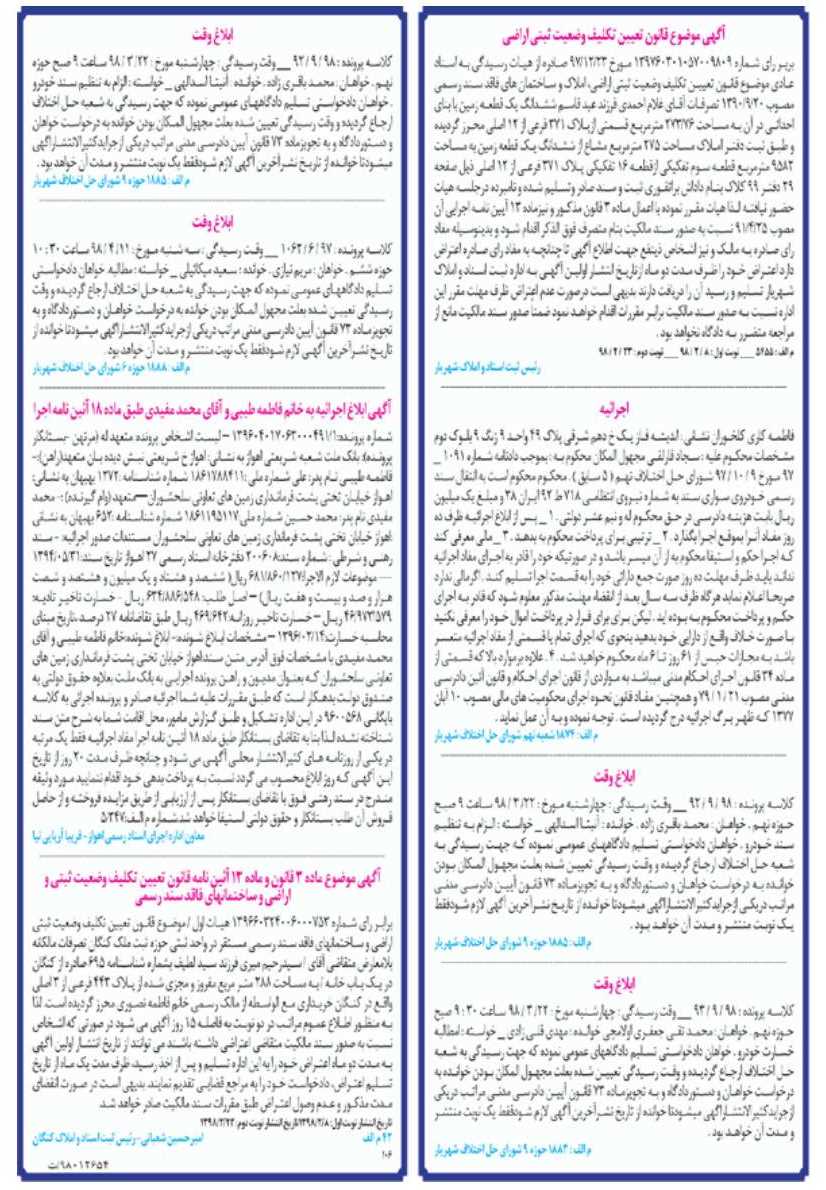 آگهی موضوع قانون تعیین تکلیف وضعیت ثبتی اراضی
برابر رای شماره ۱۳۹۷۶۰۳۰۱۰۵۷۰۰۹۸۰۹ مورخ ۹۷/۱۲/۲۲ صادره از هیات رسیدگی به اسناد
عادی موضوع قانون تعیین تکلیف وضعیت ثبتی اراضی، املاک و ساختمان های فاقد سند رسمی
مصوب ۱۳۹۰/۹/۲۰ تصرفات آقای غلام احمدی فرزند عبد قاسم ششدانگ یک قطعه زمین با بنای
احداثی در آن به مساحت ۲۷۳/۷۶ مترمربع قسمتی از پلاک ۳۷۱ فرعی از ۱۲ اصلی محرز گردیده
و طبق ثبت دفتر املاک مساحت ۲۷۵ مترمربع مشاع از ششدانگ یک قطعه زمین به مساحت
۹۵۸۲ مترمربع قطعه سوم تفکیکی از قطعه ۱۶ تفکیکی پلاک ۳۷۱ فرعی از ۱۲ اصلی ذیل صفحه
۲۹ دفتر ۹۹ کلاک بنام داداش براتقوری ثبت و سند صادر وتسلیم شده و نامبرده در جلسه هیات
حضور نیافته لذا هیات مقرر نموده با اعمال ماده ۳ قانون مذکور و نیز ماده ۱۳ آیین نامه اجرایی آن
مصوب ۹۱/۴/۲۵ نسبت به صدور سند مالکیت بنام متصرف فوق الذکر اقدام شود و بدینوسیله مفاد
رای صادره به مالک و نیز اشخاص ذینفع جهت اطلاع آگهی تا چنانچه به مفاد رای صادره اعتراض
دارد اعتراض خود را ظرف مدت دو ماه از تاریخ انتشار اولین آگهی به اداره ثبت اسناد و املاک
شهریار تسلیم و رسید آن را دریافت دارند بدیهی است درصورت عدم اعتراض ظرف مهلت مقرر این
اداره نسبت به صدور سند مالکیت برابر مقررات اقدام خواهد نمود ضمنا صدور سند مالکیت مانع از
مراجعه متضرر به دادگاه نخواهد بود .
م الف : ۵۴۵۵ __ نوبت اول : ۹۸ / ۲ / ۸ __ نوبت دوم : ۹۸ / ۲ / ۲۳
رئیس ثبت اسناد و املاک شهریار
اجرائیه
فاطمه کاری کلخوران نشانی : اندیشه فاز یک خ دهم شرقی پلاک ۴۹ واحد ۹ زنگ ۹ بلوک دوم
مشخصات محکوم علیه : سجاد قارلقی مجهول المکان محکوم به : بموجب دادنامه شماره ۱۰۹۱ _
۹۷ مورخ ۹ / ۱۰ / ۹۷ شورای حل اختلاف نهم ( ۵ سابق ) . محکوم محکوم است به انتقال سند
رسمی خودروی سواری سند به شماره نیروی انتظامی ۷۱۸ ط ۹۲ ایران ۳۸ و مبلغ یک میلیون
ریال بابت هزینه دادرسی در حق محکوم له و نیم عشر دولتی . ۱ _ پس از ابلاغ اجرائیه ظرف ده
روز مفاد آنرا بموقع اجرا بگذارد . ۲ _ ترتیبی برای پرداخت محکوم به بدهد . ۳ _ مالی معرفی کند
که اجرا حکم و استیفا محکوم به از آن میسر باشد و در صورتیکه خود را قادر به اجرای مفاد اجرائیه
نداند باید ظرف مهلت ده روز صورت جمع دارائی خود را به قسمت اجرا تسلیم کند . اگر مالی ندارد
صریحا اعلام نماید هر گاه ظرف سه سال بعد از انقضاء مهلت مذکور معلوم شود که قادر به اجرای
حکم و پرداخت محکوم به بوده اید . لیکن برای فرار در پرداخت اموال خود را معرفی نکنید
یا صورت خلاف واقع از دارایی خود بدهید بنحوی که اجرای تمام یا قسمتی از مفاد اجرائیه متعسر
باشد به مجازات حبس از ۶۱ روز تا ۶ ماه محکوم خواهید شد . ۴ _ علاوه بر موارد بالا که قسمتی از
ماده ۳۴ قانون اجرای احکام مدنی میباشد به مواردی از قانون اجرای احکام و قانون آئین دادرسی
مدنی مصوب ۲۱ / ۱ / ۷۹ و همچنین مفاد قانون نحوه اجرای محکومیت های مالی مصوب ۱۰ آبان
۱۳۷۷ که ظهر برگ اجرائیه درج گردیده است . توجه نموده و به آن عمل نماید .
م الف : ۱۸۷۴ شعبه نهم شورای حل اختلاف شهریار
ابلاغ وقت
کلاسه پرونده : ۹۸ / ۹ / ۹۲ __ وقت رسیدگی : چهارشنبه مورخ : ۹۸ / ۳ / ۲۲ ساعت ۹ صبح
حوزه نهم . خواهان : محمد باقری زاده . خوانده : آنیتا اسدالهی _ خواسته : الزام به تنظیم
سند خودرو . خواهان دادخواستی تسلیم دادگاههای عمومی نموده که جهت رسیدگی به
شعبه حل اختلاف ارجاع گردیده و وقت رسیدگی تعیین شده بعلت مجهول المکان بودن
خوانده به درخواست خواهان و دستور دادگاه و به تجویزماده ۷۳ قانون آیین دادرسی مدنی
مراتب دریکی ازجراید کثیرالانتشار آگهی میشود تا خوانده از تاریخ نشر آخرین آگهی لازم شودفقط
یک نوبت منتشر و مدت آن خواهد بود .
م الف : ۱۸۸۵ حوزه ۹ شورای حل اختلاف شهریار
ابلاغ وقت
کلاسه پرونده : ۹۸ / ۹ / ۹۳ __ وقت رسیدگی : چهارشنبه مورخ : ۹۸ / ۳ / ۲۲ ساعت ۹:۳۰ صبح
حوزه نهم . خواهان : محمد تقی جعفری اولامچی خوانده : مهدی قنی زادی _ خواسته : مطالبه
خسارت خودرو . خواهان دادخواستی تسلیم دادگاههای عمومی نموده که جهت رسیدگی به شعبه
حل اختلاف ارجاع گردیده و وقت رسیدگی تعیین شده بعلت مجهول المکان بودن خوانده به
درخواست خواهان و دستور دادگاه و به تجویزماده ۷۳ قانون آیین دادرسی مدنی مراتب دریکی
ازجراید کثیرالانتشار آگهی میشودتا خوانده از تاریخ نشر آخرین آگهی لازم شودفقط یک نوبت منتشر
و مدت آن خواهد بود .
م الف : ۱۸۸۳ حوزه ۹ شورای حل اختلاف شهریار
ابلاغ وقت
کلاسه پرونده : ۹۸ / ۹ / ۹۲ __ وقت رسیدگی : چهارشنبه مورخ : ۹۸ / ۳ / ۲۲ ساعت ۹ صبح حوزه
نهم . خواهان : محمد باقری زاده . خوانده : آنیتا اسدالهی _ خواسته : الزام به تنظیم سند خودرو
. خواهان دادخواستی تسلیم دادگاههای عمومی نموده که جهت رسیدگی به شعبه حل اختلاف
ارجاع گردیده و وقت رسیدگی تعیین شده بعلت مجهول المکان بودن خوانده به درخواست خواهان
و دستور دادگاه و به تجویزماده ۷۳ قانون آیین دادرسی مدنی مراتب دریکی ازجراید کثیرالانتشار آگهی
میشودتا خوانده از تاریخ نشر آخرین آگهی لازم شودفقط یک نوبت منتشر و مدت آن خواهد بود .
م الف : ۱۸۸۵ حوزه ۹ شورای حل اختلاف شهریار
ابلاغ وقت
کلاسه پرونده : ۹۷ / ۶ / ۱۰۶۲ __ وقت رسیدگی : سه شنبه مورخ : ۹۸ / ۴ / ۱۱ ساعت ۱۰:۳۰
حوزه ششم . خواهان : مریم نیازی . خوانده : سعید میکائیلی _ خواسته : مطالبه. خواهان دادخواستی
تسلیم دادگاههای عمومی نموده که جهت رسیدگی به شعبه حل اختلاف ارجاع گردیده و وقت
رسیدگی تعیین شده بعلت مجهول المکان بودن خوانده به درخواست خواهان و دستور دادگاه و به
تجویزماده ۷۳ قانون آیین دادرسی مدنی مراتب دریکی ازجراید کثیرالانتشار آگهی میشودتا خوانده از
تاریخ نشر آخرین آگهی لازم شودفقط یک نوبت منتشر و مدت آن خواهد بود .
م الف : ۱۸۸۸ حوزه ۶ شورای حل اختلاف شهریار
آگهی ابلاغ اجرائیه به خانم فاطمه طیبی و آقای محمد مفیدی طبق ماده ۱۸ آئین نامه اجرا
شماره پرونده: ۱۳۹۶۰۴۰۱۷۰۶۳۰۰۰۴۹۱/۱ - لیست اشخاص پرونده متعهد له (مرتهن -بستانکار
پرونده): بانک ملت شعبه شریعتی اهواز به نشانی: اهواز خ شریعتی نبش دیده بان متعهد(راهن):-
فاطمه طیبی نام پدر: علی شماره ملی: ۱۸۶۱۷۸۸۴۱۱ شماره شناسنامه: ۱۳۷۲ بهبهان به نشانی:
اهواز خیابان تختی پشت فرمانداری زمین های تعاونی سلحشوران-متعهد(وام گیرنده): - محمد
مفیدی نام پدر: محمد حسین شماره ملی ۱۸۶۱۱۹۵۱۱۷ شماره شناسنامه :۶۵۲ بهبهان به نشانی
اهواز خیابان تختی پشت فرمانداری زمین های تعاونی سلحشوران مستندات صدور اجرائیه: - سند
رهنی و شرطی : شماره سند: ۲۰۰۶۰۸ دفترخانه اسناد رسمی ۲۷ اهواز تاریخ سند: ۱۳۹۴/۰۵/۳۱
- موضوعات لازم الاجرا: ۶۸۱/۸۶۰/۱۲۷ ریال( ششصد و هشتاد و یک میلیون و هشتصد و شصت
هزار و صد و بیست و هفت ریال) - اصل طلب: ۶۳۴/۸۸۶/۵۴۸ ریال - خسارت تاخیر تادیه:
۴۶/۹۷۳/۵۷۹ ریال - خسارت تاخیر روزانه: ۴۶۹/۶۴۲ ریال طبق تقاضانامه ۲۷ درصد،تاریخ مبنای
محاسبه خسارت: ۱۳۹۶/۰۲/۱۴ - مشخصات ابلاغ شونده- ابلاغ شونده خانم فاطمه طیبی و آقای
محمد مفیدی با مشخصات فوق آدرس متن سند اهواز خیابان تختی پشت فرمانداری زمین های
تعاونی سلحشوران که بعنوان مدیون و راهن پرونده اجرایی به بانک ملت بعلاوه حقوق دولتی به
صندوق دولت بدهکار است که طبق مقررات علیه شما اجرائیه صادر و پرونده اجرائی به کلاسه
بایگانی ۹۶۰۰۵۶۸ در این اداره تشکیل و طبق گزارش مامور، محل اقامت شما به شرح متن سند
شناخته نشده لذا بنا به تقاضای بستانکار طبق ماده ۱۸ آئین نامه اجرا مفاد اجرائیه فقط یک مرتبه
در یکی از روزنامه های کثیرالانتشار محلی آگهی می شود و چنانچه ظرف مدت ۲۰ روز از تاریخ
این آگهی که روز ابلاغ محسوب می گردد نسبت به پرداخت بدهی خود اقدام ننمایید مورد وثیقه
مندرج در سند رهنی فوق با تقاضای بستانکار پس از ارزیابی از طریق مزایده فروخته و از حاصل
فروش آن طلب بستانکار و حقوق دولتی استیفا خواهد شد.شماره م الف:۵/۲۴۷
معاون اداره اجرای اسناد رسمی اهواز - فریبا آریایی نیا
آگهی موضوع ماده ۳ قانون و ماده ۱۳ آئین نامه قانون تعیین تکلیف وضعیت ثبتی و
اراضی و ساختمانهای فاقد سند رسمی
برابر رای شماره ۱۳۹۶۶۰۳۲۴۰۰۶۰۰۰۷۵۳ هیات اول / موضوع قانون تعیین تکلیف وضعیت ثبتی
اراضی و ساختمانهای فاقد سند رسمی مستقر در واحد ثبتی حوزه ثبت ملک کنگان تصرفات مالکانه
بلامعارض متقاضی آقای / سیدرحیم میری فرزند سید لطیف بشماره شناسنامه ۶۹۵ صادره از کنگان
در یک باب خانه ا به مساحت ۲۸۸ متر مربع مفروز و مجزی شده از پلاک ۴۴۳ فرعی از ۳ اصلی
واقع در کنگان خریداری مع الواسطه از مالک رسمی خانم فاطمه تصوری محرز گردیده است. لذا
به منظور اطلاع عموم مراتب در دو نوبت به فاصله ۱۵ روز آگهی می شود در صورتی که اشخاص
نسبت به صدور سند مالکیت متقاضی اعتراضی داشته باشند می توانند از تاریخ انتشار اولین آگهی
به مدت دو ماه اعتراض خود را به این اداره تسلیم و پس از اخذ رسید، ظرف مدت یک ماه از تاریخ
تسلیم اعتراض، دادخواست خود را به مراجع قضایی تقدیم نمایند. بدیهی است در صورت انقضای
مدت مذکور و عدم وصول اعتراض طبق مقررات سند مالکیت صادر خواهد شد.
تاریخ انتشار نوبت اول: ۱۳۹۸/۲/۸ تاریخ انتشار نوبت دوم: ۱۳۹۸/۲/۲۳
۴۲ م الف امیر حسین شعبانی - رئیس ثبت اسناد و املاک کنگان
۱۰۶
۹۸۰۱۲۶۵۴/ت